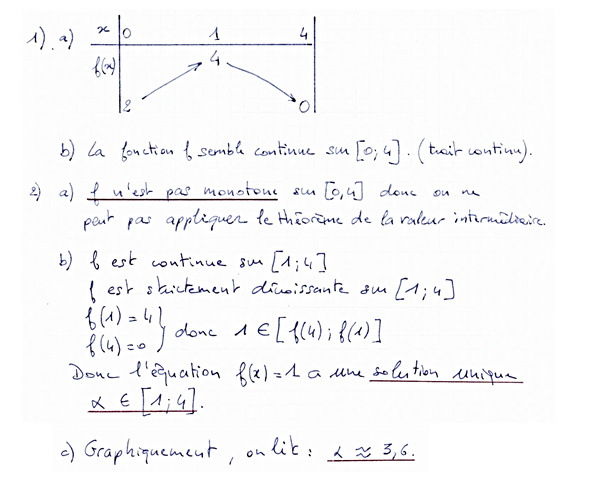 1). a) x 0 1 4
f(x) 2 4 0
b) La fonction f semble continue sur [0;4]. (trait continu).
2) a) f n'est pas monotone sur [0,4] donc on ne
peut pas appliquer le théorème de la valeur intermédiaire.
b) f est continue sur [1;4]
f est strictement décroissante sur [1;4]
f(1) = 4
f(4) = 0 } donc 1 ∈ [f(4); f(1)]
Donc l'équation f(x) = 1 a une solution unique
α ∈ [1;4].
c) Graphiquement, on lit : α ≈ 3,6.